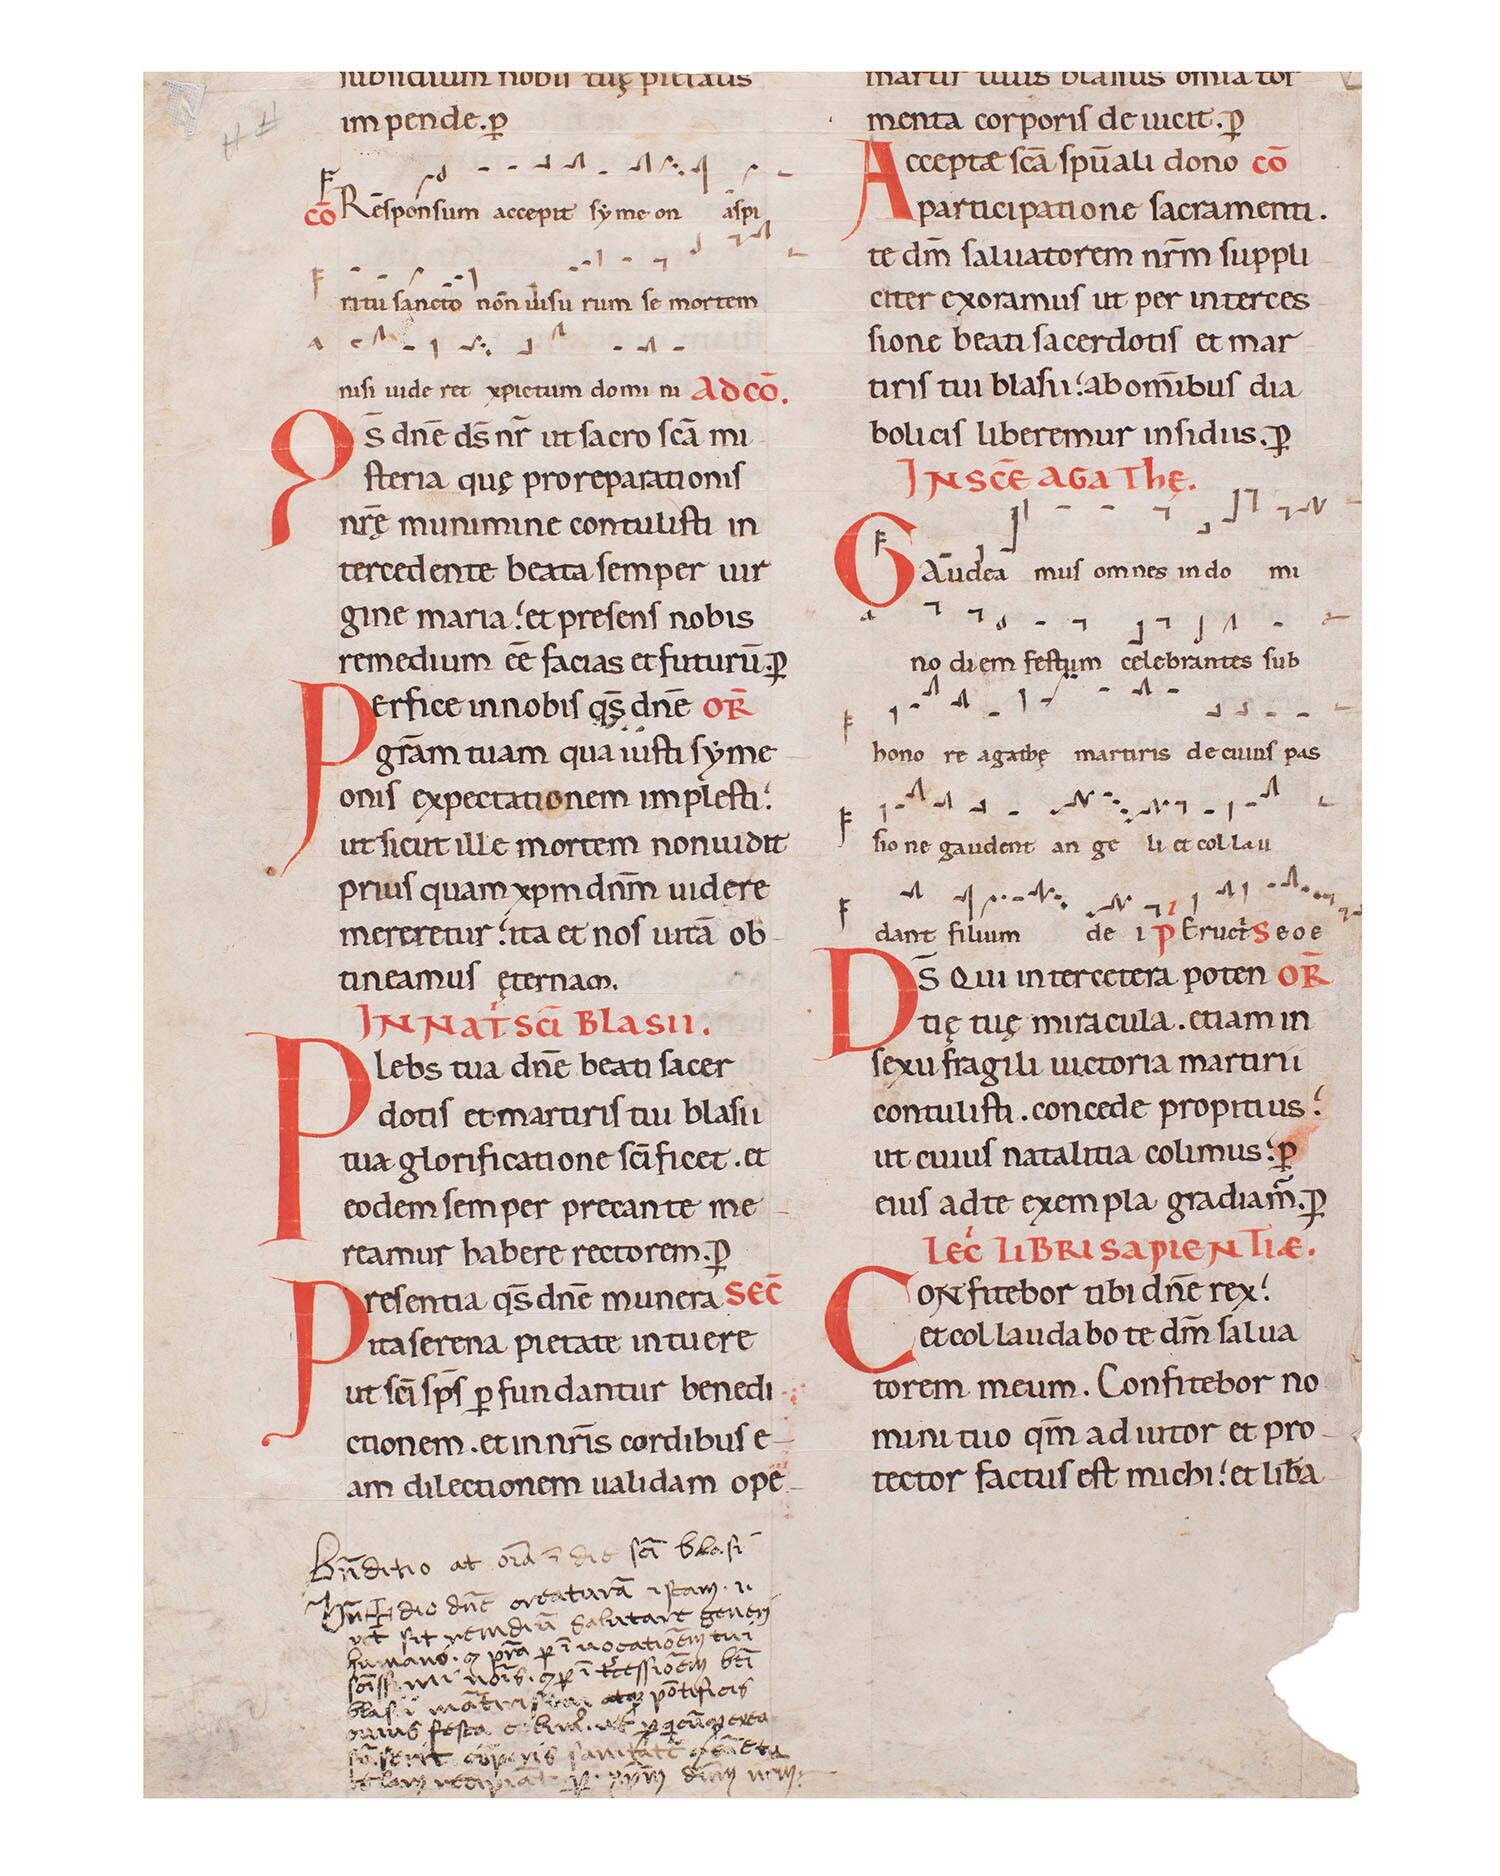 subsidium nobis tuę pietatis
impende. p̄
cō Rēsponsum accepit symeon aspi
ritu sancto non uisu rum se mortem
nisi uide ret xpictum domi ni AD CŌ.
Qs̄ dnē ds̄ nr̄ ut sacro scā mi
steria quę pro reparationis
nrę̄ munimine contulisti in
tercedente beata semper uir
gine maria. et presens nobis
remedium eē facias et futurū. p̄
Perfice in nobis qs̄ dnē OR̄
gr̄am tuam qua iusti syme
onis expectationem implesti.
ut sicut ille mortem non uidit
prius quam xpm dnm̄ uidere
mereretur. ita et nos uitā ob
tineamus ęternam.
IN NAT̄ SC̄I BLASII.
Plebs tua dnē beati sacer
dotis et martiris tui blasii
tua glorificatione sc̄ificet. et
eodem semper precante me
reamur habere rectorem. p̄
Presentia qs̄ dnē munera SEC̄
ita serena pietate intuere
ut sc̄i sp̄s p̄fundantur benedi
ctionem. et in nr̄is cordibus e
am dilectionem ualidam ope
Bn̄ditio at or̄o ī die sc̄i blasi
Bn̄ ✠ dic dn̄e creaturā istam. n̄
ut sit remediū salutare generi
humano. 7 pr̄a p̄ īuocationem tui
sc̄issimi nōis. 7 p̄ īt̄cessionem bt̄i
blasii mātiris tui atq̄ pōtificis
cuius festa
martir tuus blasius omīa tor
menta corporis deuicit. p̄
Acceptæ scā spūali dono CŌ
participatione sacramenti.
te dm̄ saluatorem nr̄m suppli
citer exoramus ut per interces
sione beati sacerdotis et mar
tiris tui blasii. ab omībus dia
bolicis liberemur insidiis. p̄
IN SCĒ AGATHĘ.
Gaudea mus omnes in do mi
no diem festum celebrantes sub
hono re agathę martiris de cuius pas
sio ne gaudent an ge li et col lau
dant filium de i P̄ Eruct̄ S e o e
Ds̄ qui inter cetera poten OR̄
tię tuę miracula. etiam in
sexu fragili uictoria martirii
contulisti. concede propitius.
ut cuius natalitia colimus. p̄
eius ad te exempla gradiam̄. p̄
LEC̄ LIBRI SAPIENTIÆ.
Confitebor tibi dnē rex.
et collaudabo te dm̄ salua
torem meum. Confitebor no
mini tuo qm̄ adiutor et pro
tector factus est michi. et liba